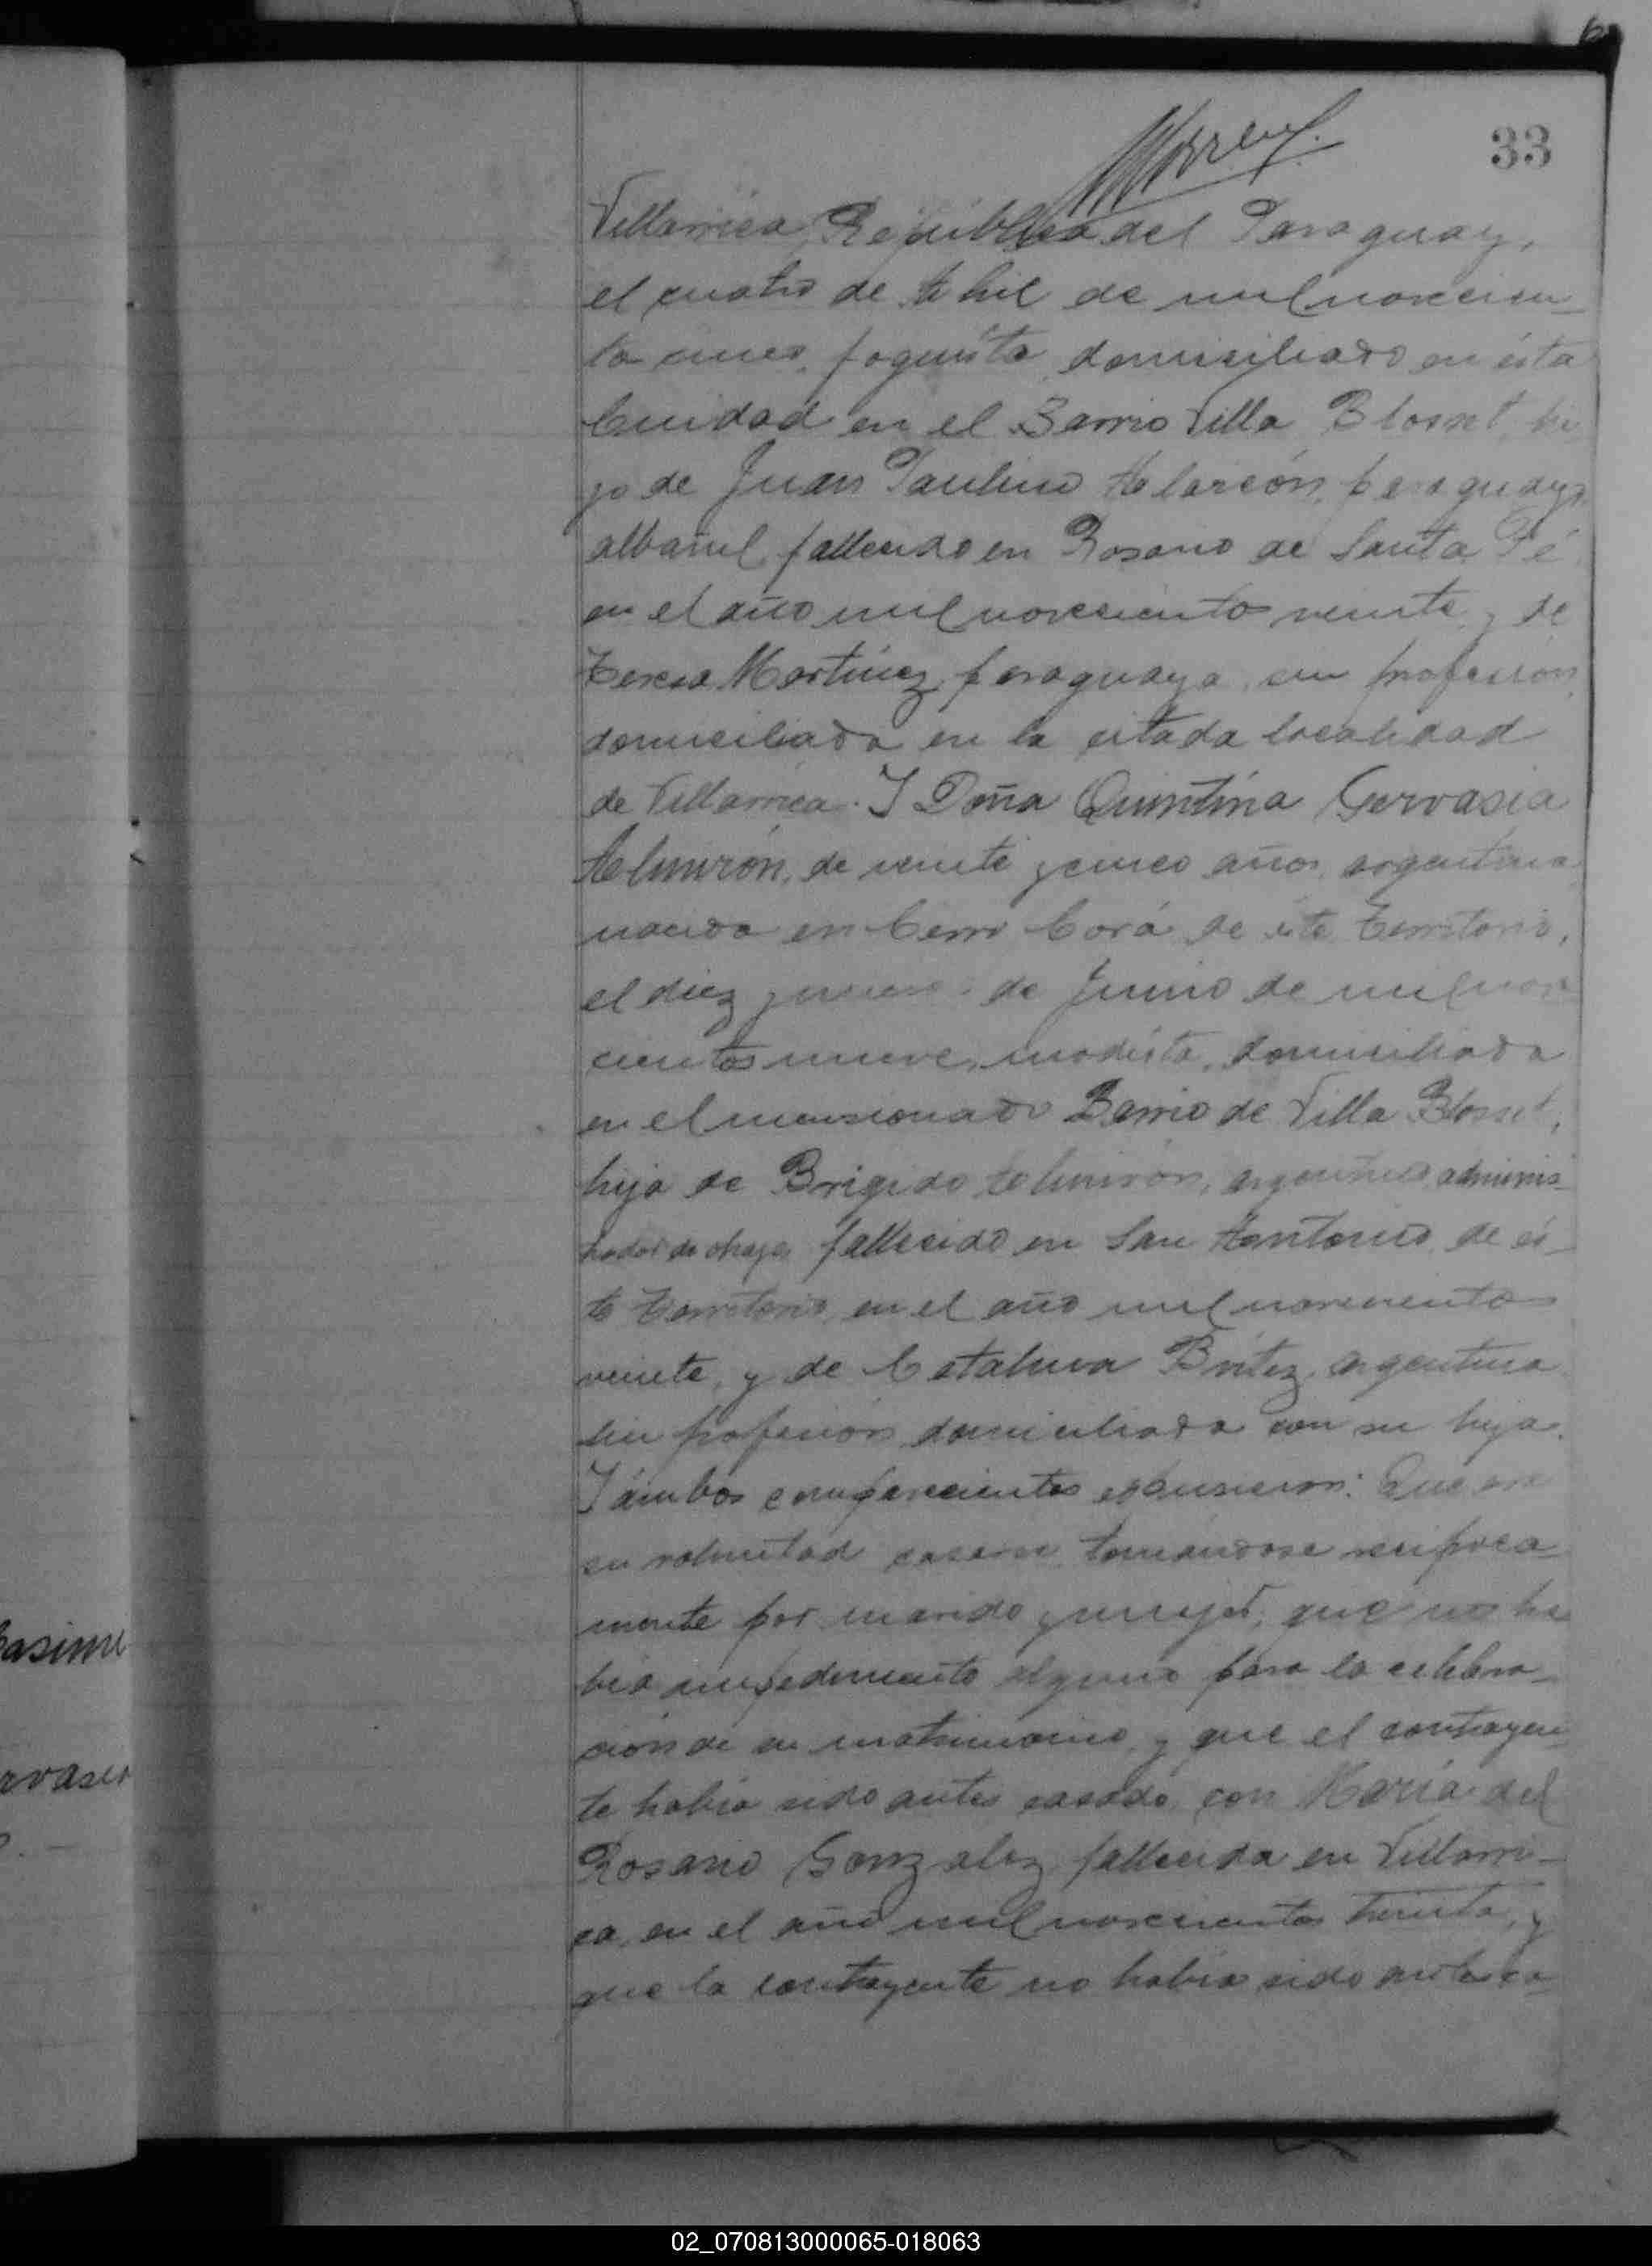 33
Villarrica, República del Paraguay,
el cuatro de Abril de mil novecien_
to cinco, foguista, domiciliado en ésta
Ciudad en el Barrio Villa Blosset, hi
jo de Juan Paulino Alarcón, paraguayo,
albañil, fallecido en Rosario de Santa Fé
en el año mil novecientos veinte, y de
Teresa Martínez, paraguaya, sin profesión,
domiciliada en la citada localidad
de Villarrica. Y Doña Quintina Gervasia
Almirón, de veinte y cinco años, argentina
nacida en Cerro Corá de este Territorio,
el diez y nueve de Junio de mil nove
cientos nueve, modista, domiciliada
en el mensionado Barrio de Villa Blosset,
hija de Brigido Almirón, argentino, adminis_
trador de obrajes fallecido en San Antonio, de és_
te Territorio, en el año mil novecientos
veinte, y de Catalina Britez, argentina
sin profesión, domiciliada con su hija.
Y ámbos comparecientes expusieron: Que era
su voluntad casarse tomándose recíproca
mente por marido y mujer; que no ha
bía impedimento alguno para la celebra_
ción de su matrimonio, y que el contrayen
te había sido antes casado con María del
Rosario Gonzalez, fallecida en Villarri_
ca, en el año mil novecientos treinta, y
que la contrayente no había sido antes ca_
casimi
rvasia
02_070813000065-018063